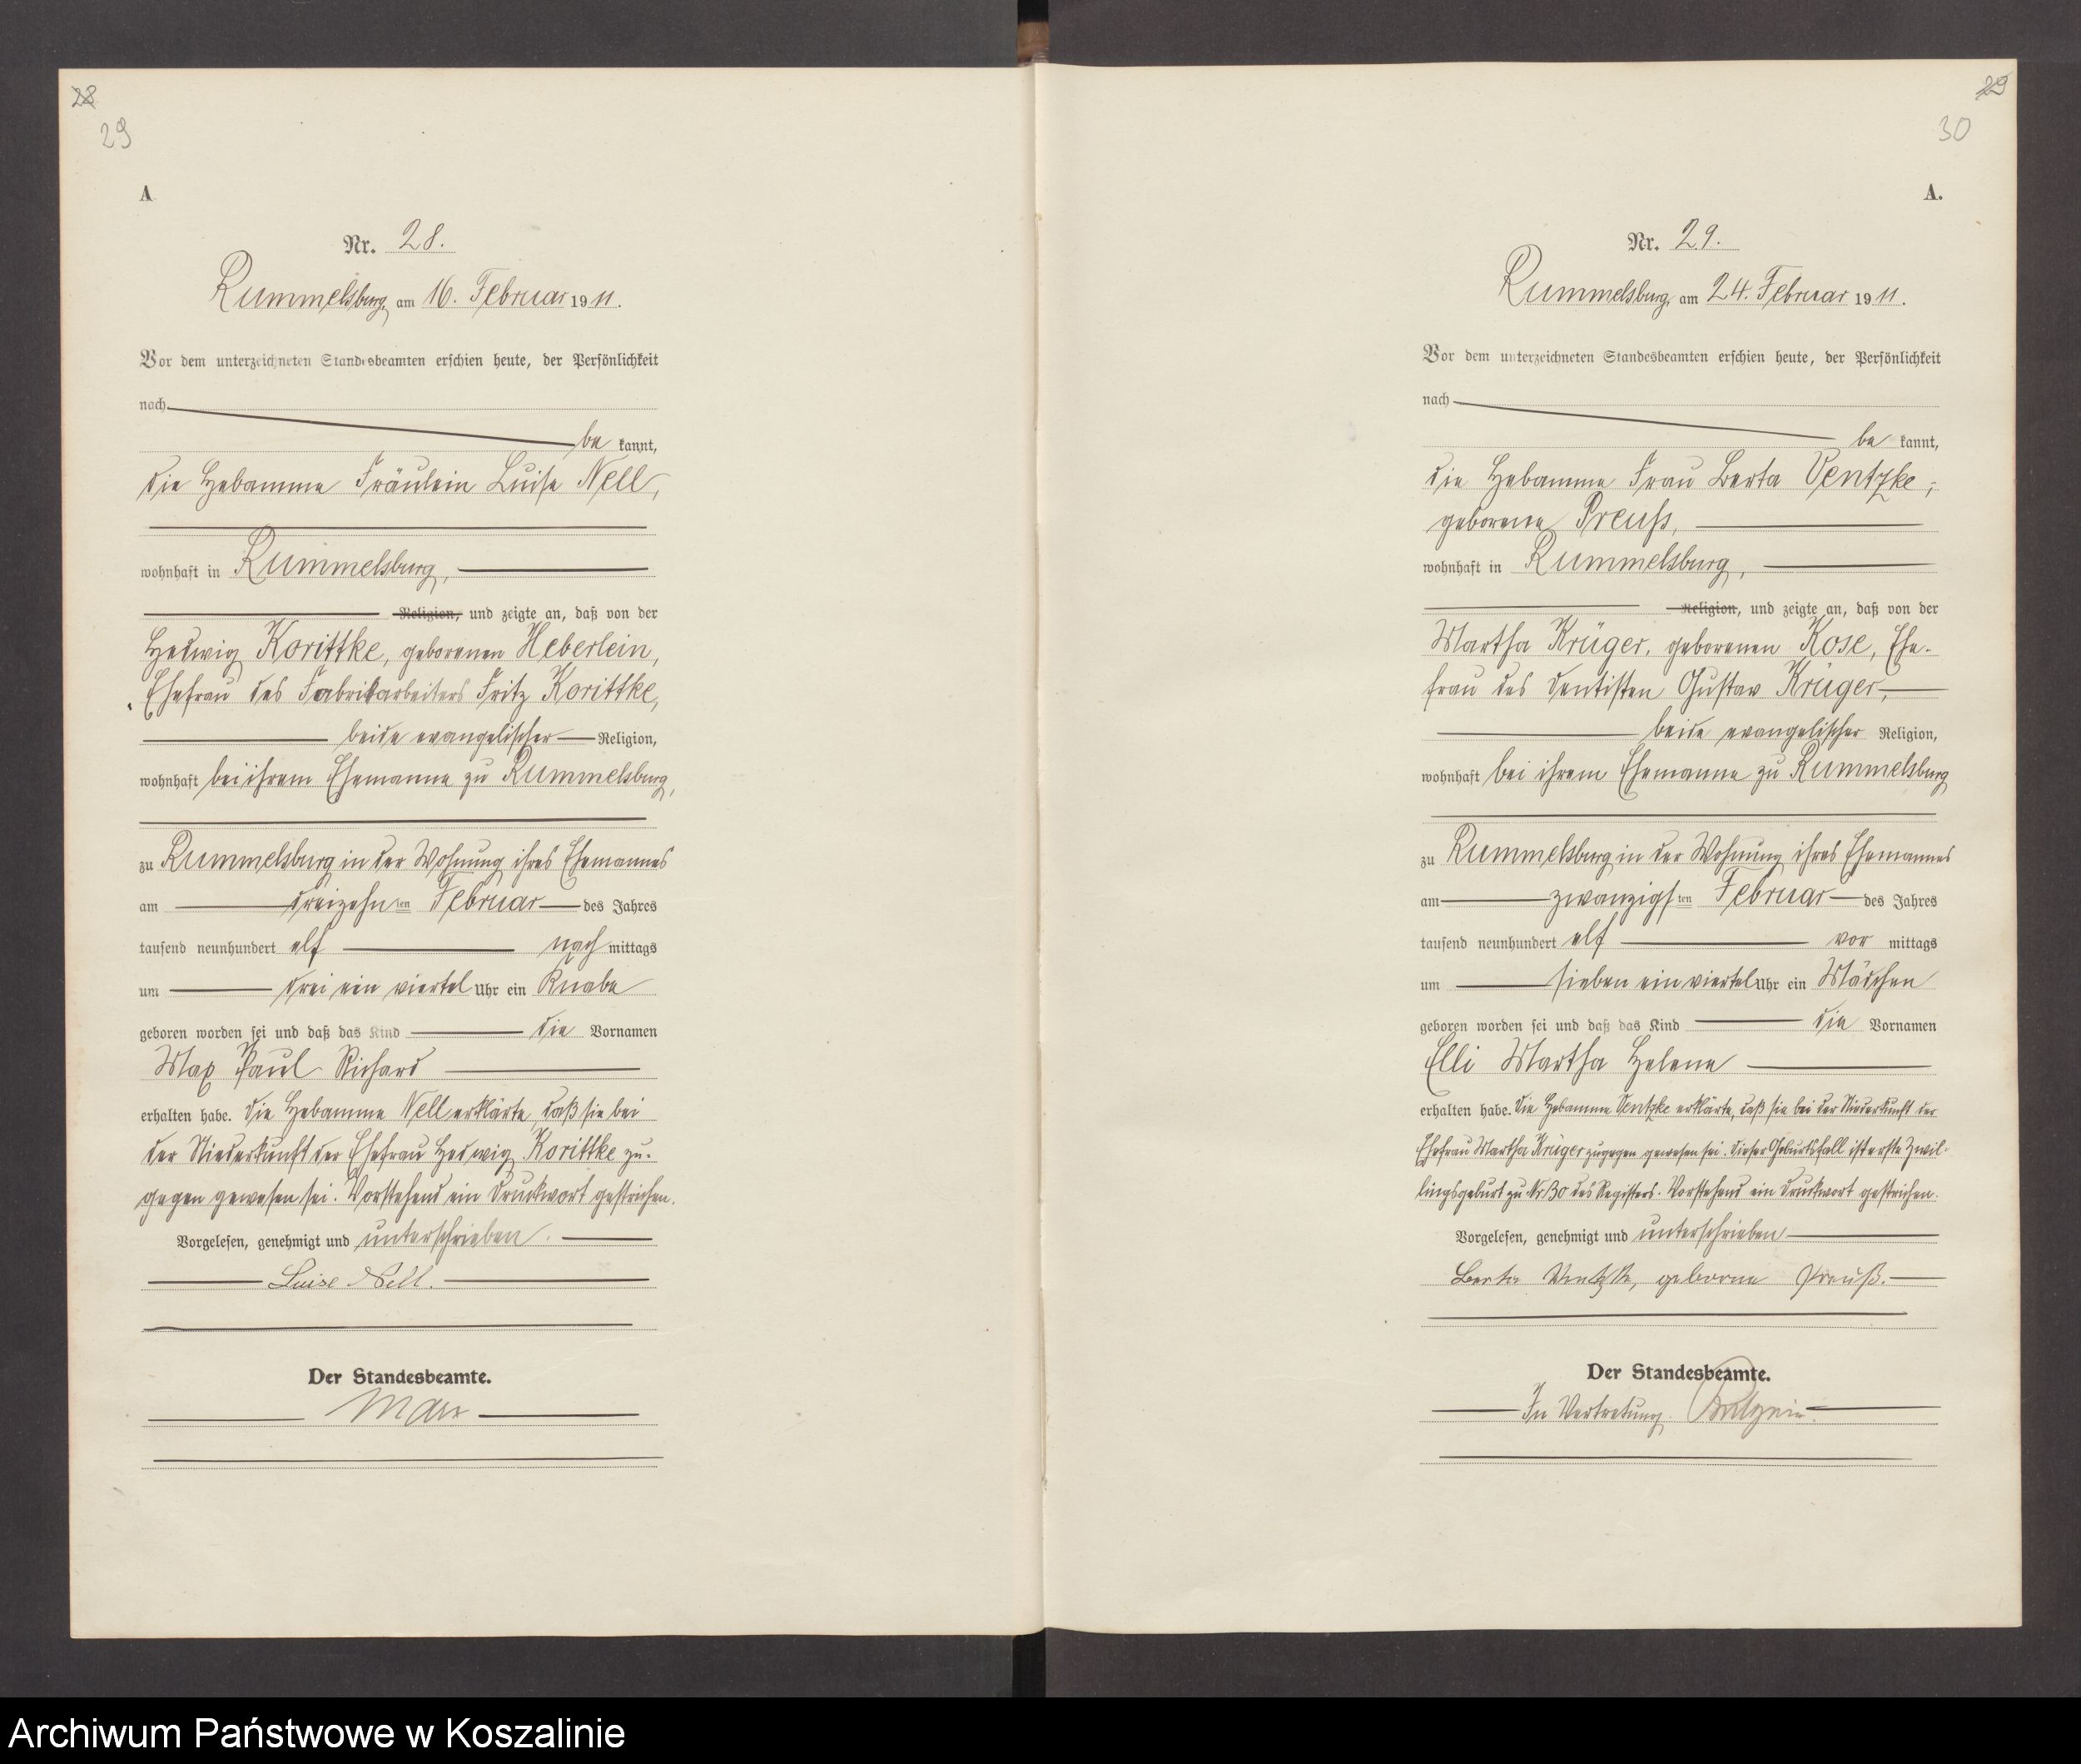 28
29
A
Nr. 28.
Rummelsburg, am 16. Februar 1911.
Vor dem unterzeichneten Standesbeamten erschien heute, der Persönlichkeit
nach
be kannt,
die Hebamme Fräulein Luise Nell,
wohnhaft in Rummelsburg,
Religion, und zeigte an, daß von der
Hedwig Korittke, geborenen Heberlein,
Ehefrau des Fabrikarbeiters Fritz Korittke,
beide evangelischer Religion,
wohnhaft bei ihrem Ehemanne zu Rummelsburg,
zu Rummelsburg in der Wohnung ihres Ehemannes
am dreizehnten Februar des Jahres
tausend neunhundert elf nachmittags
um drei ein viertel Uhr ein Knabe
geboren worden sei und daß das Kind die Vornamen
Max Paul Richard
erhalten habe. Die Hebamme Nell erklärte, daß sie bei
der Niederkunft der Ehefrau Hedwig Korittke zu-
gegen gewesen sei. Vorstehend ein Druckwort gestrichen.
Vorgelesen, genehmigt und unterschrieben.
Luise Nell.
Der Standesbeamte.
Marx
29
30
A.
Nr. 29.
Rummelsburg, am 24. Februar 1911.
Vor dem unterzeichneten Standesbeamten erschien heute, der Persönlichkeit
nach
be kannt,
die Hebamme Frau Berta Ventzke,
geborene Preuß,
wohnhaft in Rummelsburg,
Religion, und zeigte an, daß von der
Martha Krüger, geborenen Kose, Ehe-
frau des Dentisten Gustav Krüger,
beide evangelischer Religion,
wohnhaft bei ihrem Ehemanne zu Rummelsburg
zu Rummelsburg in der Wohnung ihres Ehemannes
am zwanzigsten Februar des Jahres
tausend neunhundert elf vormittags
um sieben ein viertel Uhr ein Mädchen
geboren worden sei und daß das Kind die Vornamen
Elli Martha Helene
erhalten habe. Die Hebamme Ventzke erklärte, daß sie bei der Niederkunft der
Ehefrau Martha Krüger zugegen gewesen sei. Dieser Geburtsfall ist erste Zwil-
lingsgeburt zu Nr. 30 des Registers. Vorstehend ein Druckwort gestrichen.
Vorgelesen, genehmigt und unterschrieben
Berta Ventzke, geborne Preuß.
Der Standesbeamte.
In Vertretung.
Archiwum Państwowe w Koszalinie